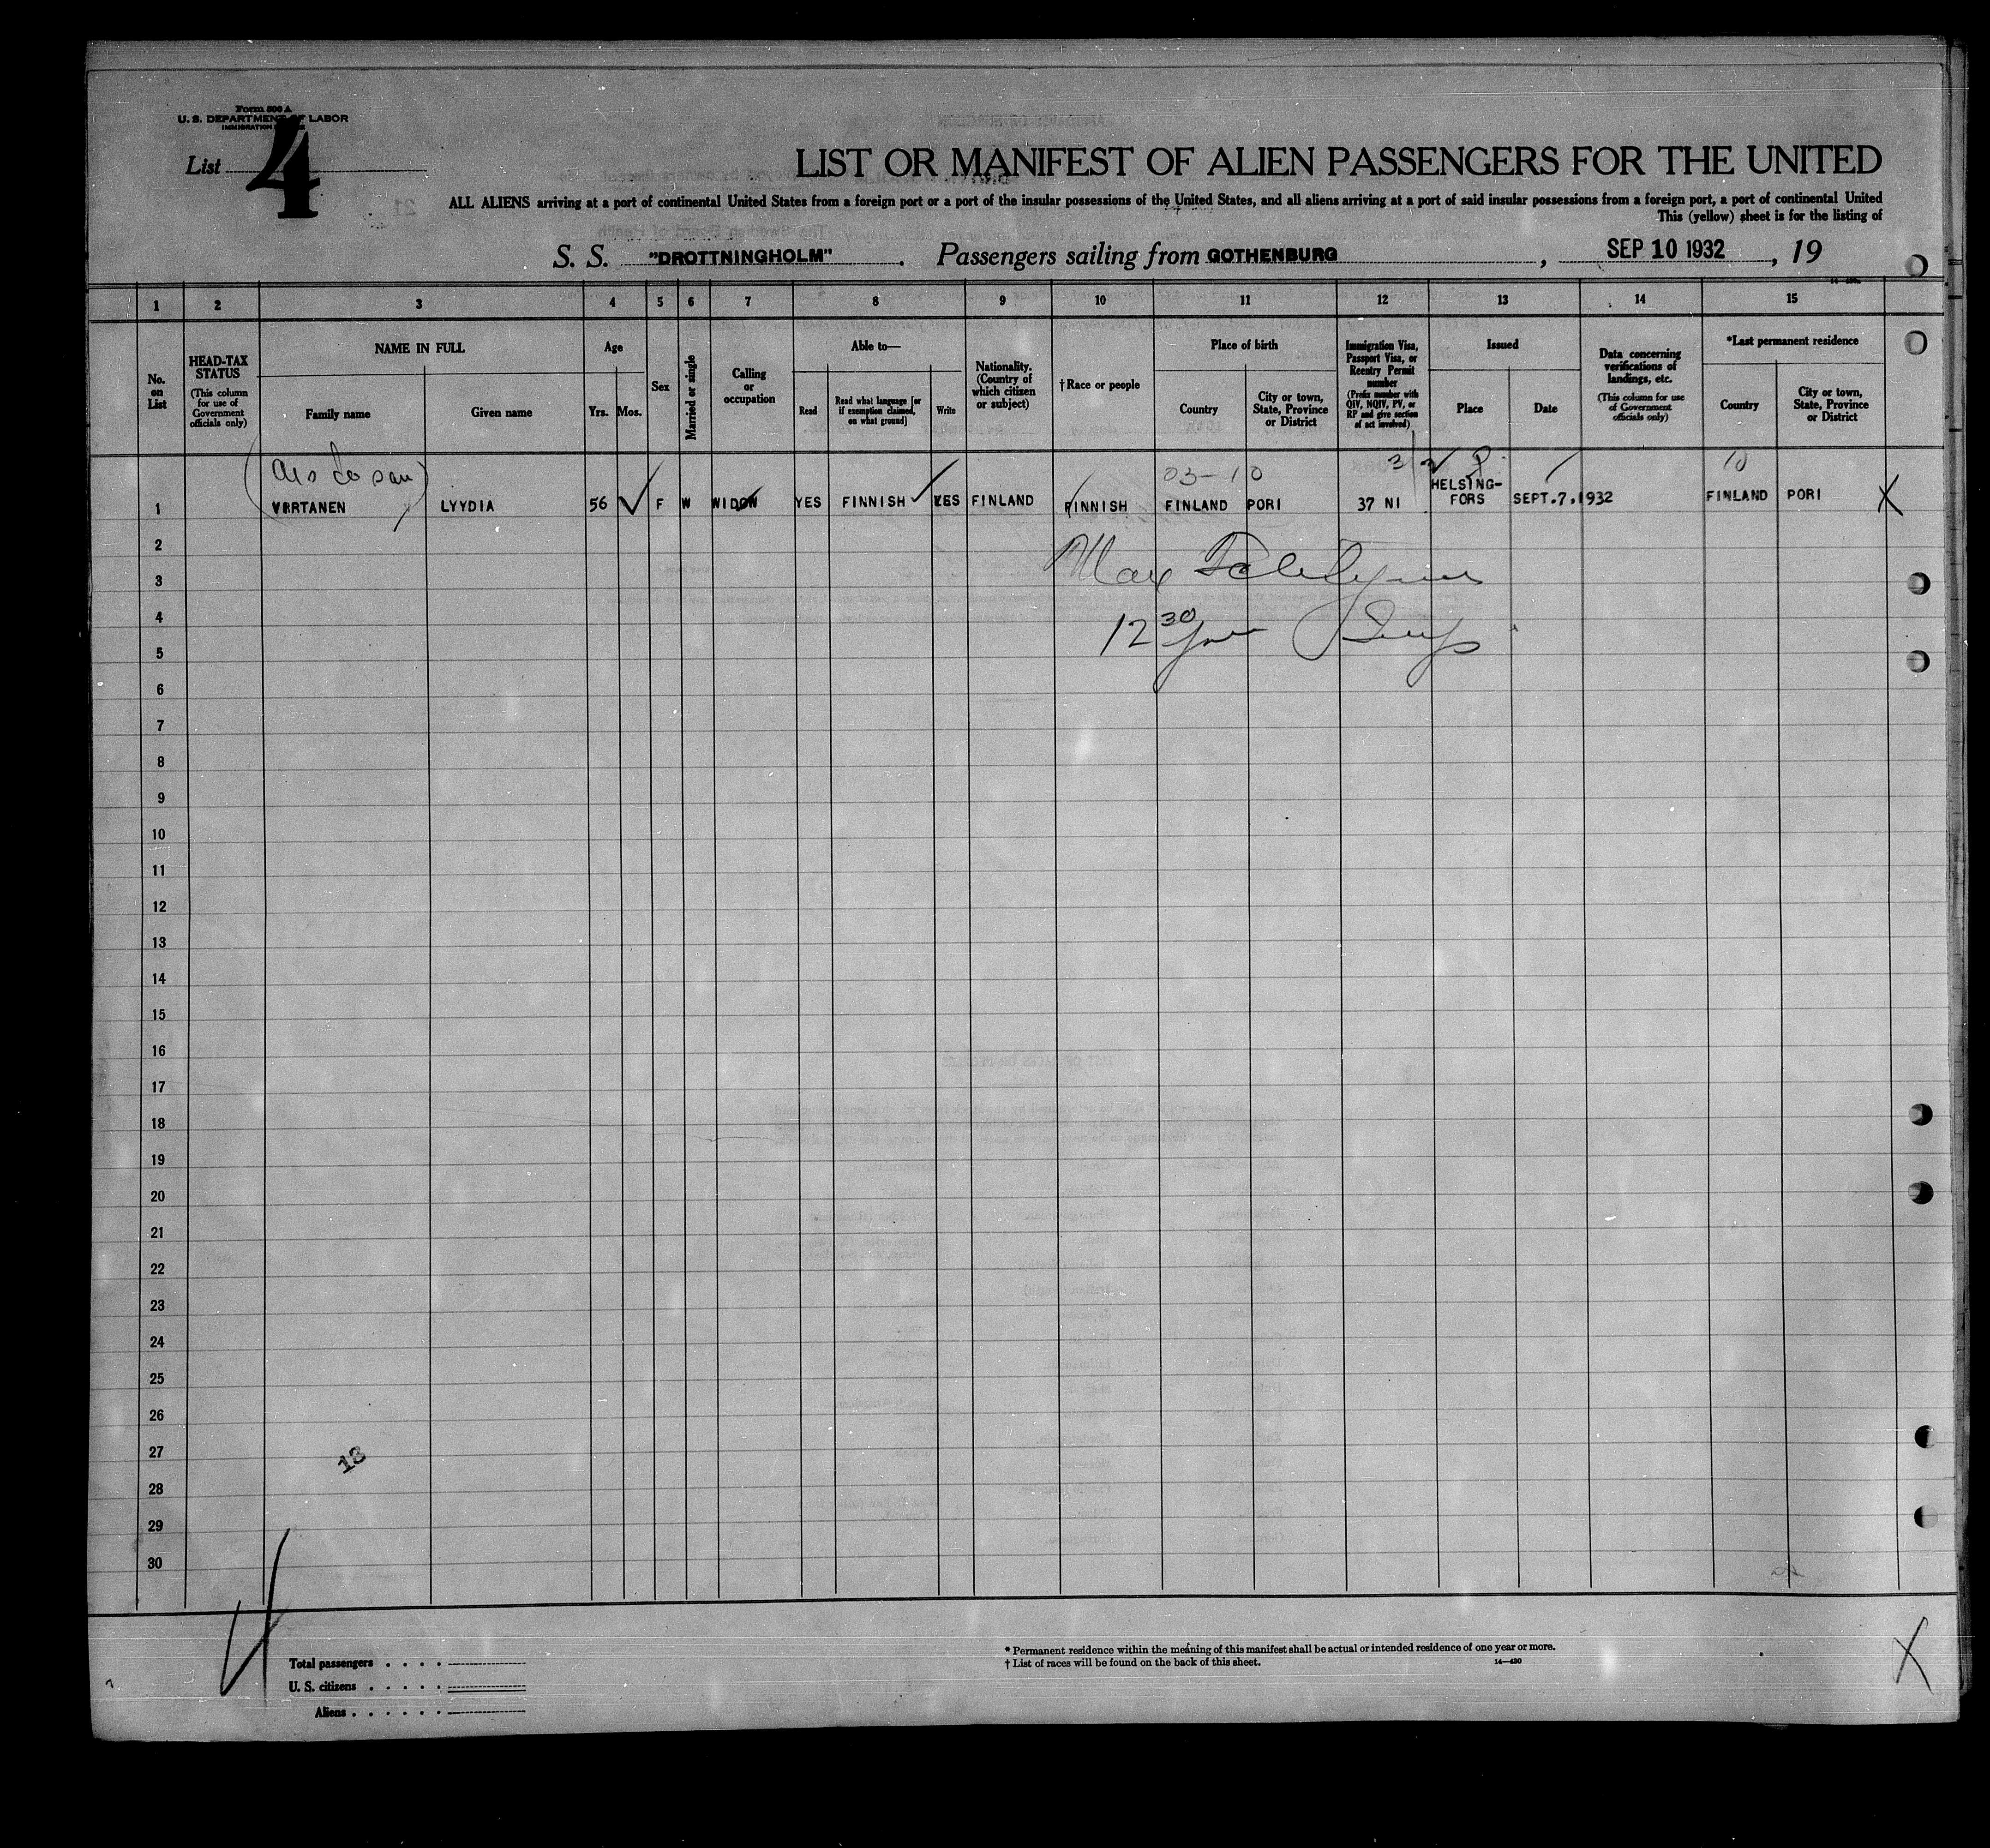 Form 500 A
U. S. DEPARTMENT OF LABOR
IMMIGRATION
List 4
LIST OR MANIFEST OF ALIEN PASSENGERS FOR THE UNITED
ALL ALIENS arriving at a port of continental United States from a foreign port or a port of the insular possessions of the United States, and all aliens arriving at a port of said insular possessions from a foreign port, a port of continental United
This (yellow) sheet is for the listing of
S. S. "DROTTNINGHOLM" . Passengers sailing from GOTHENBURG , SEP 10 1932 , 19
1 2 3 4 5 6 7 8 9 10 11 12 13 14 15
No. on List
HEAD-TAX STATUS (This column for use of Government officials only)
NAME IN FULL
Family name Given name
Age
Yrs. Mos.
Sex
Married or single
Calling or occupation
Able to—
Read Read what language [or if exemption claimed, on what ground] Write
Nationality. (Country of which citizen or subject)
†Race or people
Place of birth
Country City or town, State, Province or District
Immigration Visa, Passport Visa, or Reentry Permit number (Prefix number with QIV, NQIV, PV, or RP and give section of act involved)
Issued
Place Date
Data concerning verifications of landings, etc. (This column for use of Government officials only)
*Last permanent residence
Country City or town, State, Province or District
03-10 3 10
1 VIRTANEN LYYDIA 56 F W WIDOW YES FINNISH YES FINLAND FINNISH FINLAND PORI 37 NI HELSING-FORS SEPT.7,1932 FINLAND PORI
2
3
4
12 30
5
6
7
8
9
10
11
12
13
14
15
16
17
18
19
20
21
22
23
24
25
26
27
13
28
29
30
Total passengers . . . .
U. S. citizens . . . . .
Aliens . . . . . .
* Permanent residence within the meaning of this manifest shall be actual or intended residence of one year or more.
† List of races will be found on the back of this sheet.
14—430